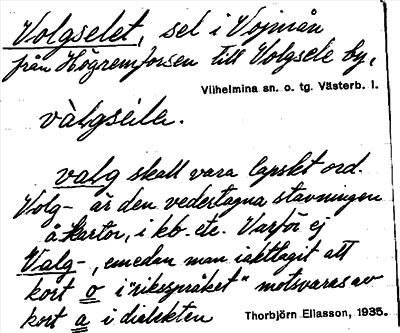 Volgselet, sel i Vojmån
från Högremforsen till Volgsele by,
Vilhelmina sn. o. tg. Västerb. l.
vàlgséla.
valg skall vara lapskt ord.
Volg- är den vedertagna stavningen
å kartor, i kb. etc. Varför ej
Valg-, emedan man iakttagit att
kort o i "riksspråket" motsvaras av
kort a i dialekten
Thorbjörn Eliasson, 1935.